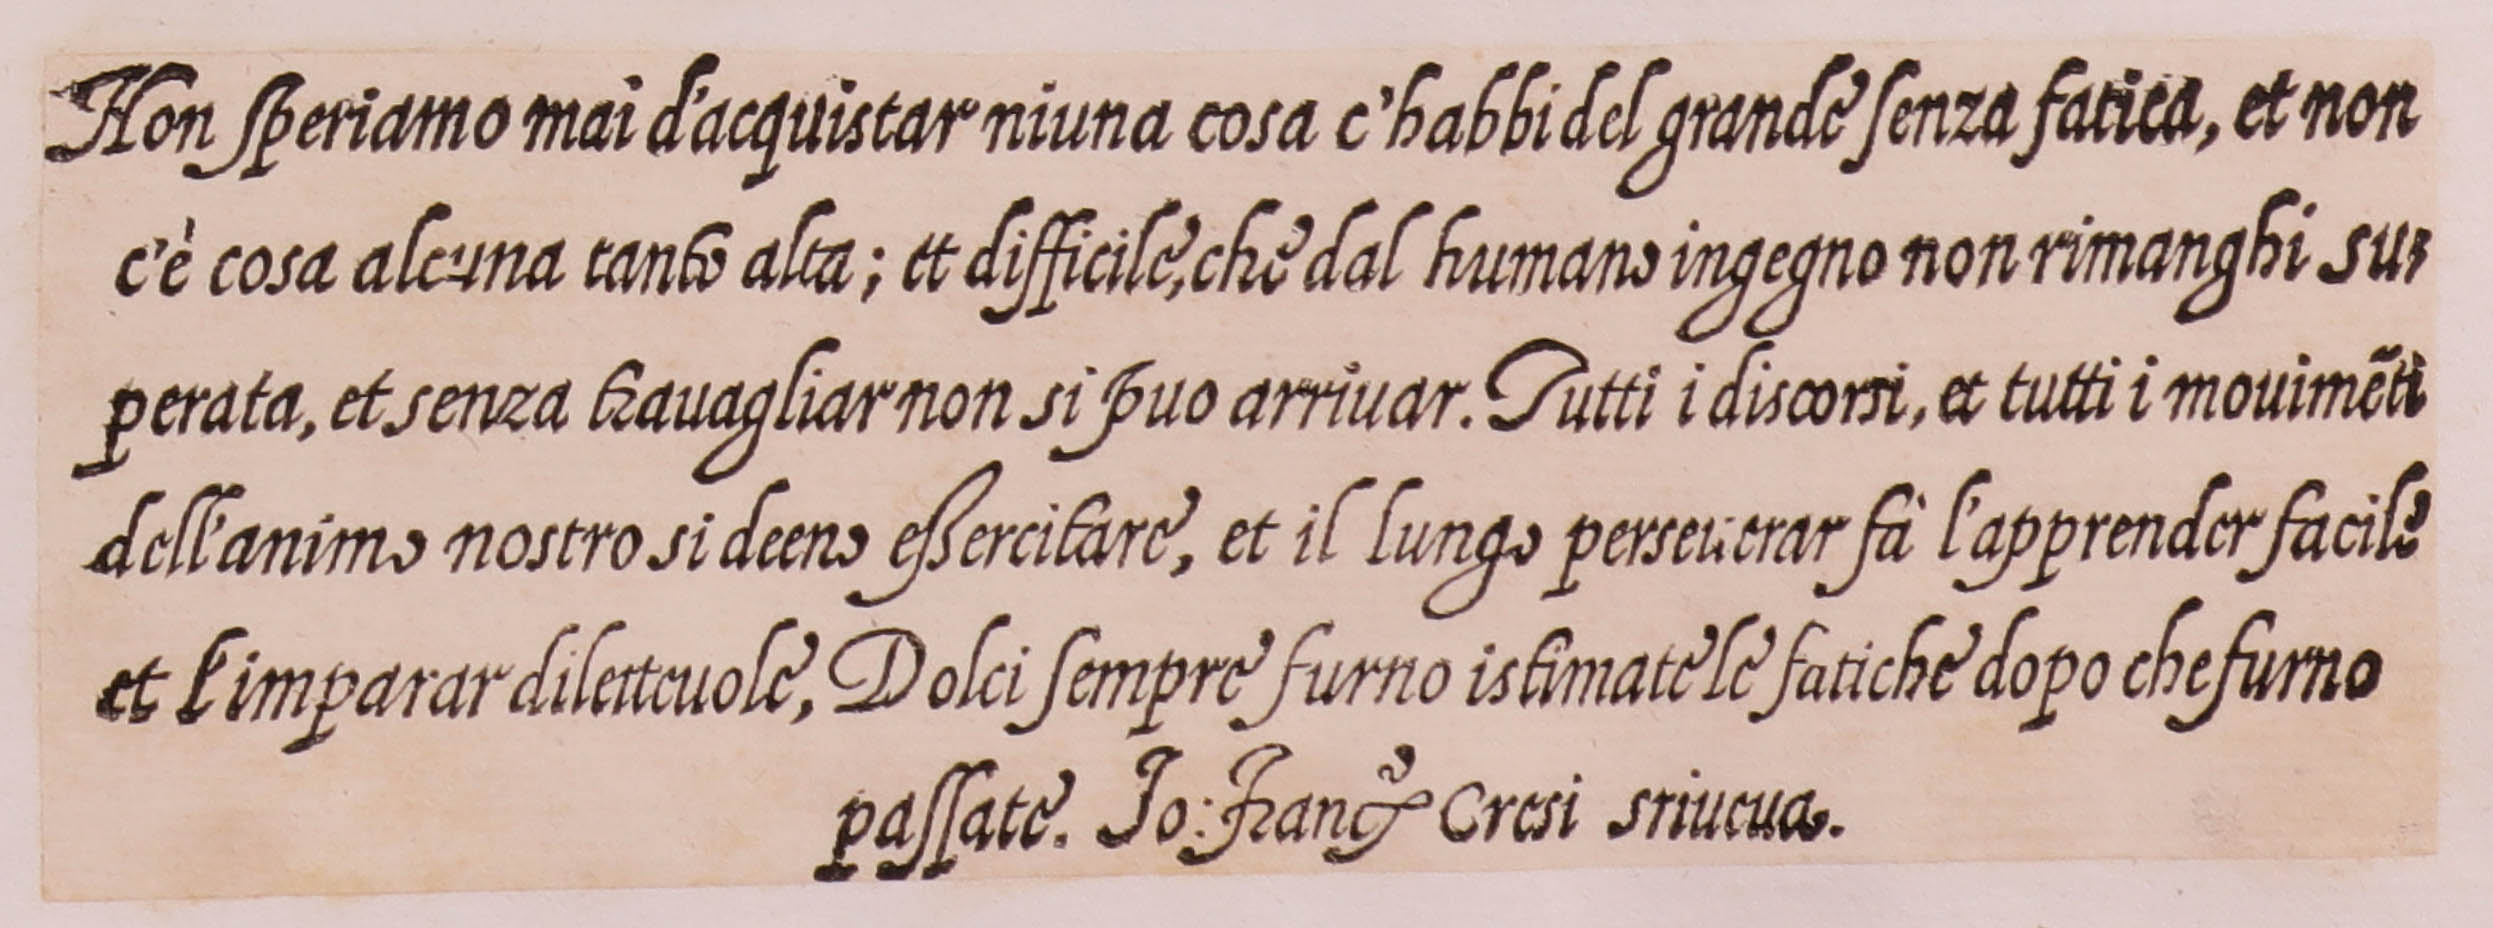 Non speriamo mai d'acquistar niuna cosa c'habbi del grande senza fatica, et non
c'è cosa alcuna tanto alta; et difficile, che dal humano ingegno non rimanghi su-
perata, et senza travagliar non si puo arriuar. Tutti i discorsi, et tutti i mouimẽti
dell'animo nostro si deeno essercitare, et il lungo perseuerar fà l'apprender facile
et l'imparar diletteuole, Dolci sempre furno istimate le fatiche dopo che furno
passate. Io: Franc.º Cresi sriueua.